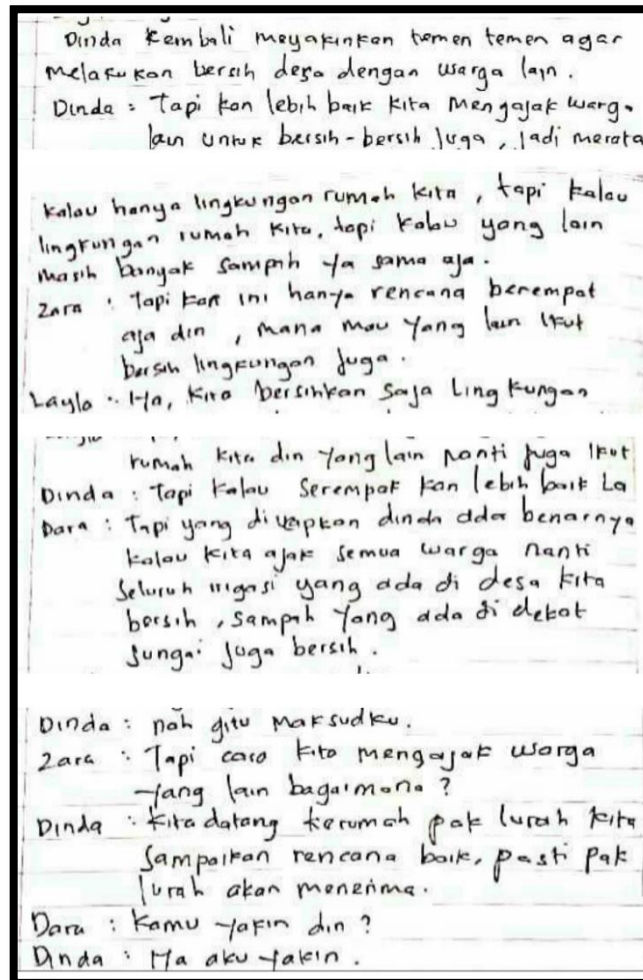 Dinda kembali meyakinkan temen temen agar
melakukan bersih desa dengan warga lain.
Dinda : Tapi kan lebih baik kita mengajak warga
lain untuk bersih-bersih juga, jadi merata
kalau hanya lingkungan rumah kita, tapi kalau
lingkungan rumah kita, tapi kalau yang lain
masih banyak sampah ya sama aja.
Zara : Tapi kan ini hanya rencana berempat
aja din, mana mau yang lain ikut
bersih lingkungan juga.
Layla : Iya, kita bersihkan saja lingkungan
rumah kita din yang lain nanti juga ikut
Dinda : Tapi kalau serempak kan lebih baik La
Dara : Tapi yang di ucapkan dinda ada benarnya
kalau kita ajak semua warga nanti
seluruh irigasi yang ada di desa kita
bersih, sampah yang ada di dekat
sungai juga bersih.
Dinda : nah gitu maksudku.
Zara : Tapi cara kita mengajak warga
yang lain bagaimana ?
Dinda : Kita datang kerumah pak lurah kita
sampaikan rencana baik, pasti pak
lurah akan menerima.
Dara : Kamu yakin din ?
Dinda : Iya aku yakin.